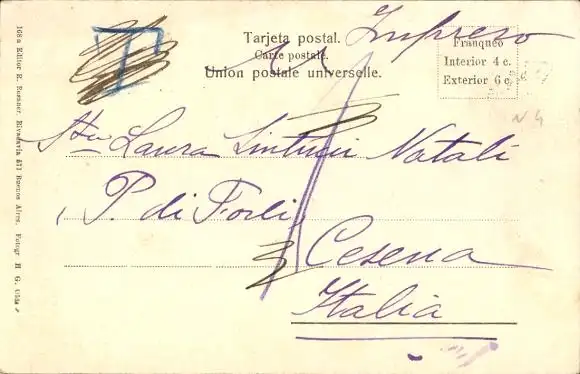 T
Impreso
Tarjeta postal.
Carte postale.
Union postale universelle.
Franqueo
Interior 4 c.
Exterior 6 c.
Laura Natali
P. di Forli
Cesena
Italia
168a Editor R. Rosauer, Rivadavia 571 Buenos Aires. Fotogr H G.